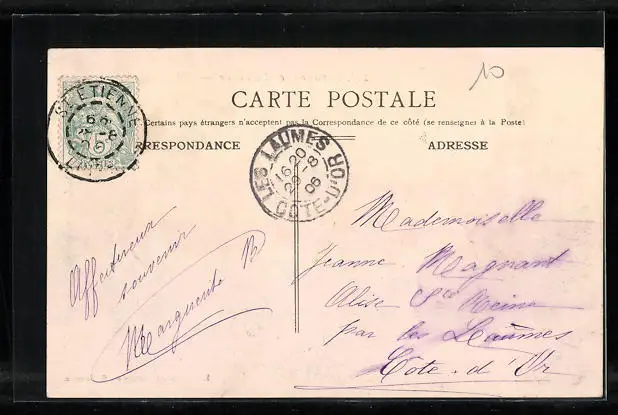 10
CARTE POSTALE
Certains pays étrangers n'acceptent pas la Correspondance de ce côté (se renseignes à la Poste)
RRESPONDANCE
ADRESSE
ST ETIENNE
LOIRE
LES LAUMES
16 20
29 -8
06
COTE-D'OR
Affectueux
souvenir
Marguerite B
Mademoiselle
Jeanne Magnant
Alise Ste Reine
par les Laumes
Côte-d'Or